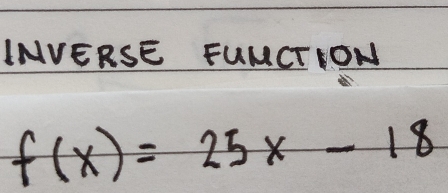 INVERSE FUNCTION
f(x) = 25x - 18